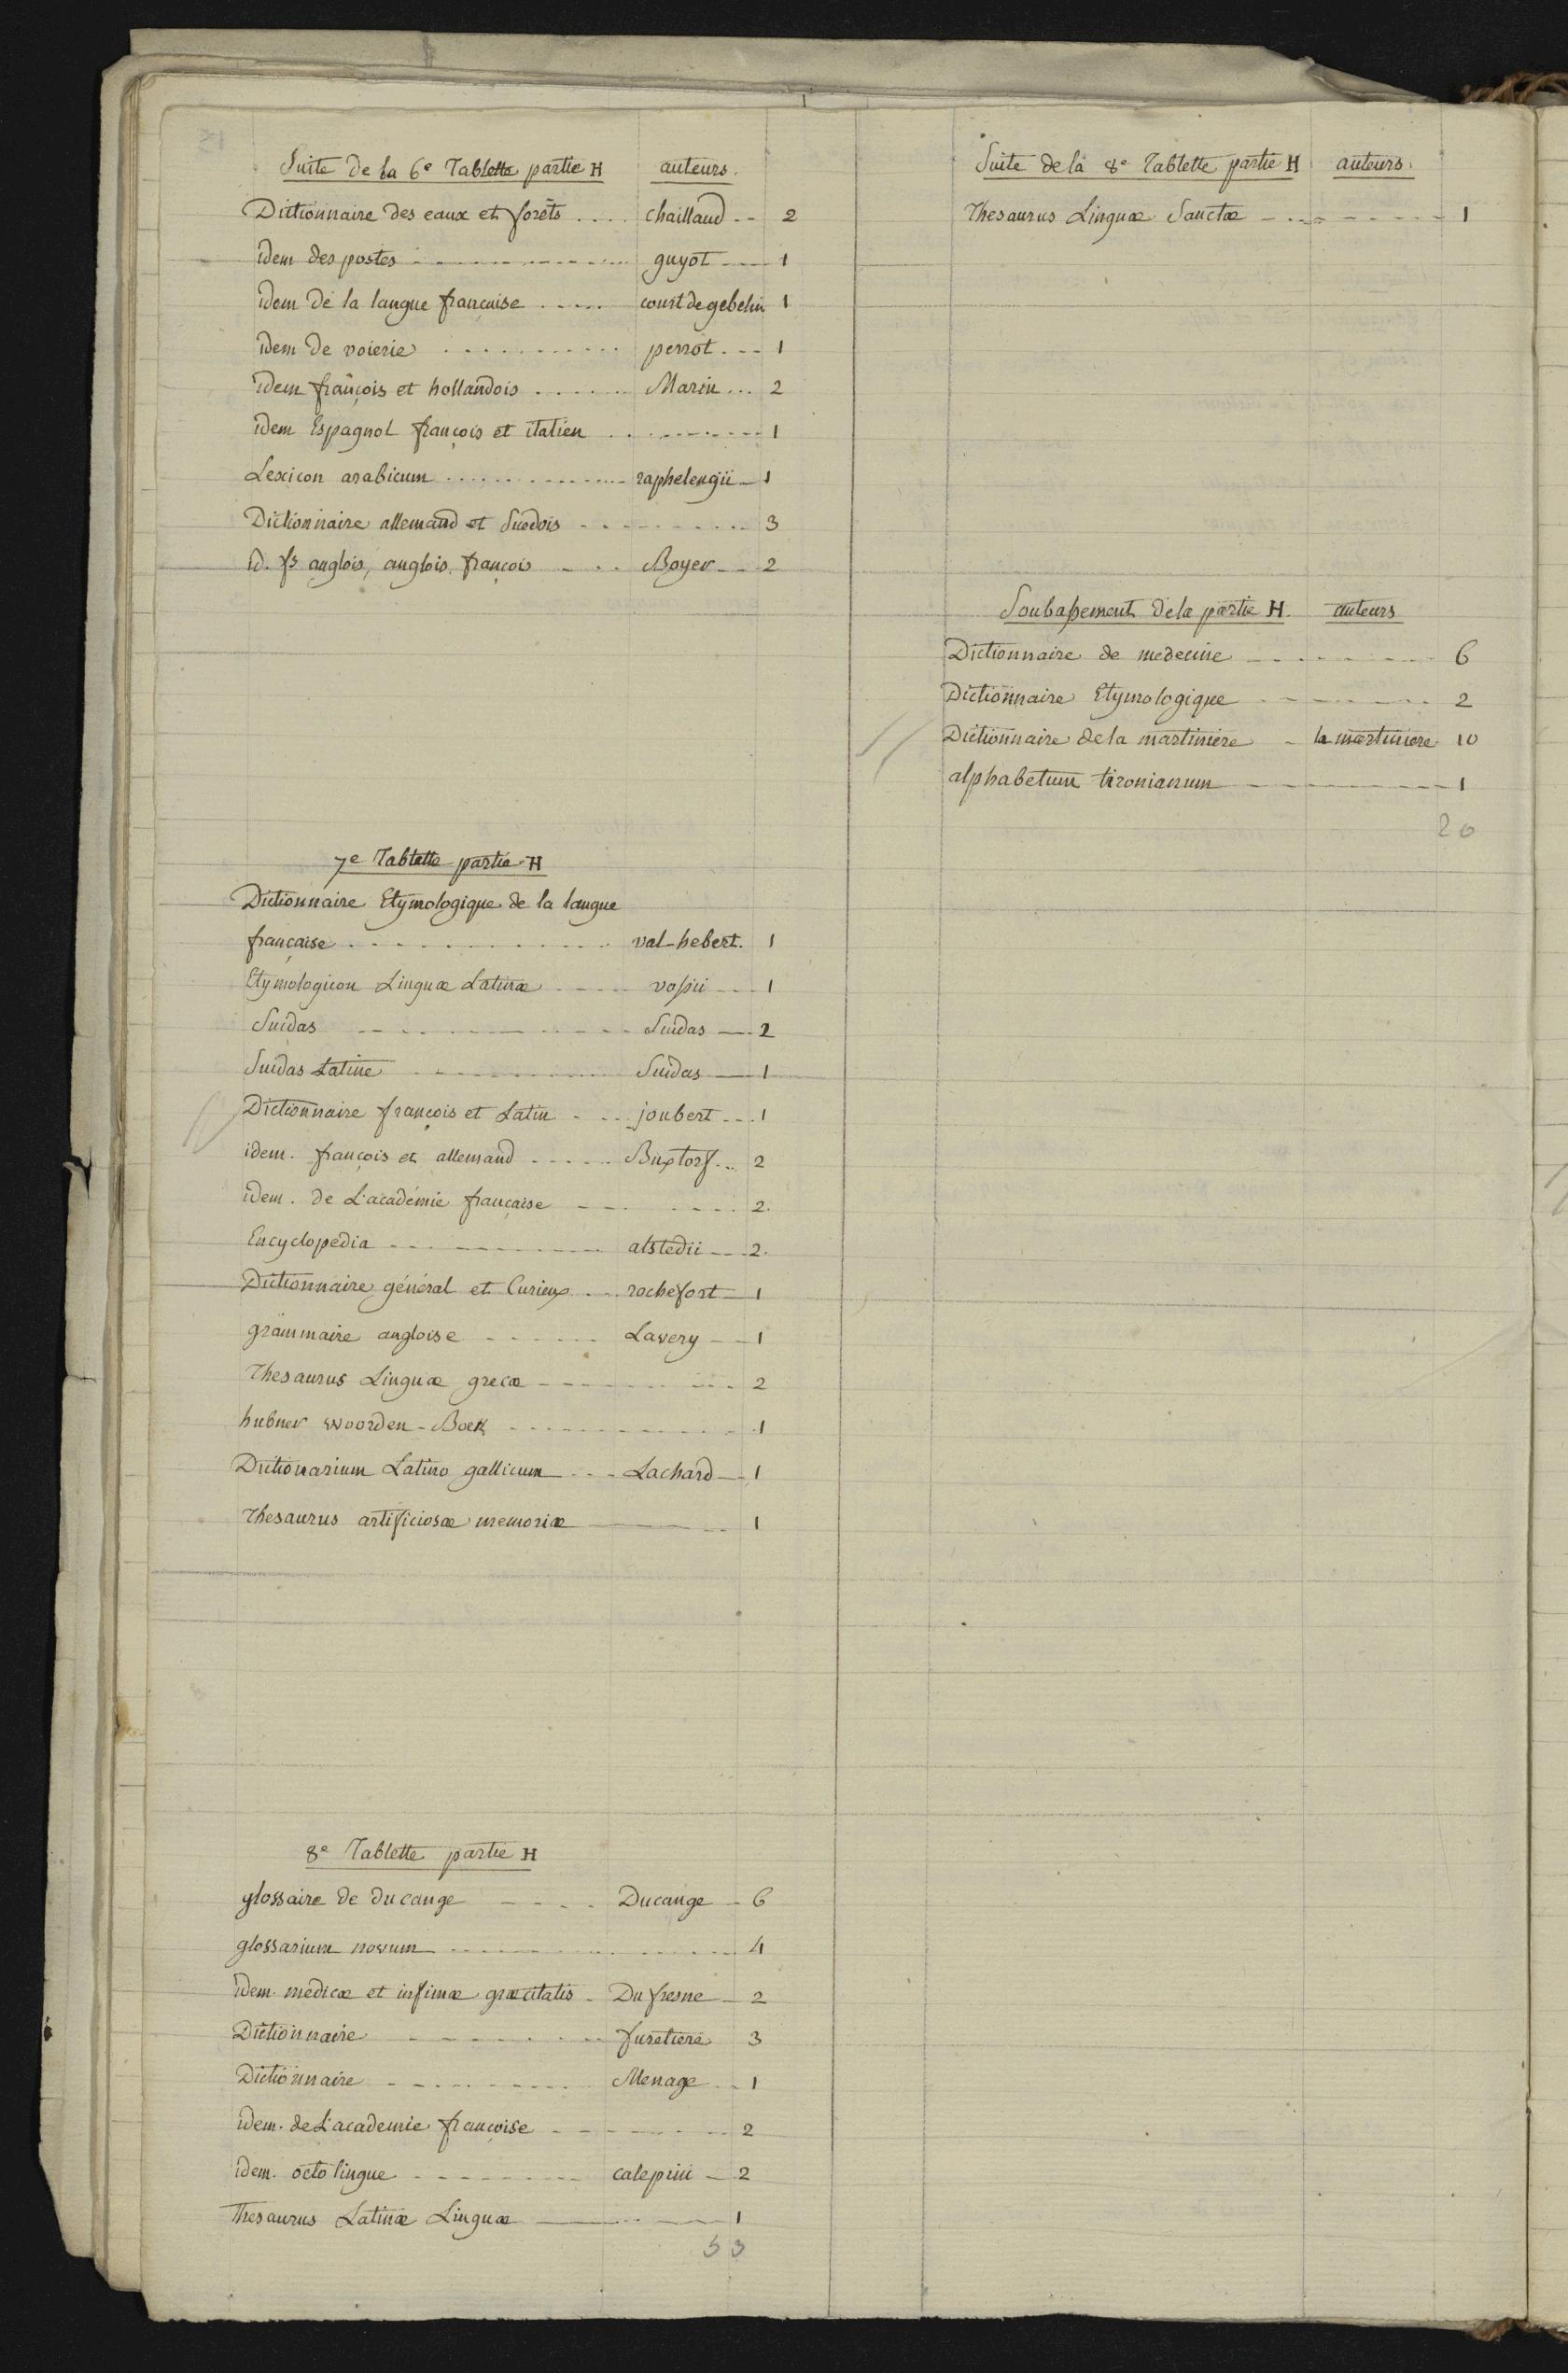 Suite de la 6e Tablette partie H auteurs.
Dictionnaire des eaux et forêts .... chailland -- 2
idem des postes ---- guyot ---- 1
idem de la langue française ..... court de gebelin 1
idem de voierie .......... perrot --- 1
idem françois et hollandois ...... Marin ... 2
idem Espagnol françois et italien .......... 1
Lexicon arabicum .......... raphelengii - 1
Dictionnaire allemand et Suedois ---------- 3
id. fs anglois, anglois françois - .. Boyer -- 2
7e Tablette partie H
Dictionnaire Etymologique de la langue
française ............ val-hebert. 1
Etymologicon Linguæ Latinæ ---- voſsii --- 1
Suidas ---------- Suidas -- 2
Suidas Latine ---------- Suidas -- 1
Dictionnaire françois et Latin - .. joubert --- 1
idem. françois et allemand ...... Buxtorf ... 2
idem. de L'académie française --- .... 2.
Encyclopedia ---------- alstedii --- 2.
Dictionnaire général et Curieux ... rochefort - 1
grammaire angloise ------ Lavery -- 1
Thesaurus Linguæ grecæ ---------- 2
hubner woorden-Boek ---------- 1
Dictionarium Latino gallicum ... Lachard -- 1
Thesaurus artificiosæ memoriæ ---------- 1
8e Tablette partie H
glossaire de ducange ---- Ducange - 6
glossarium novum ---------- 4
idem. medicæ et infimæ græcitatis - Du fresne - 2
Dictionnaire ---------- furetiere 3
Dictionnaire ---------- Menage -- 1
idem. de L'academie françoise ---------- 2
idem. octolingue ---------- calepini - 2
Thesaurus Latinæ Linguæ ---------- 1
53
Suite de la 8e Tablette partie H auteurs.
Thesaurus Linguæ Sanctæ ---------- 1
Soubaſsement de la partie H. auteurs
Dictionnaire de medecine ---------- 6
Dictionnaire Etymologique ---------- 2
Dictionnaire de la martiniere - la martiniere 10
alphabetum tironianum ---------- 1
20